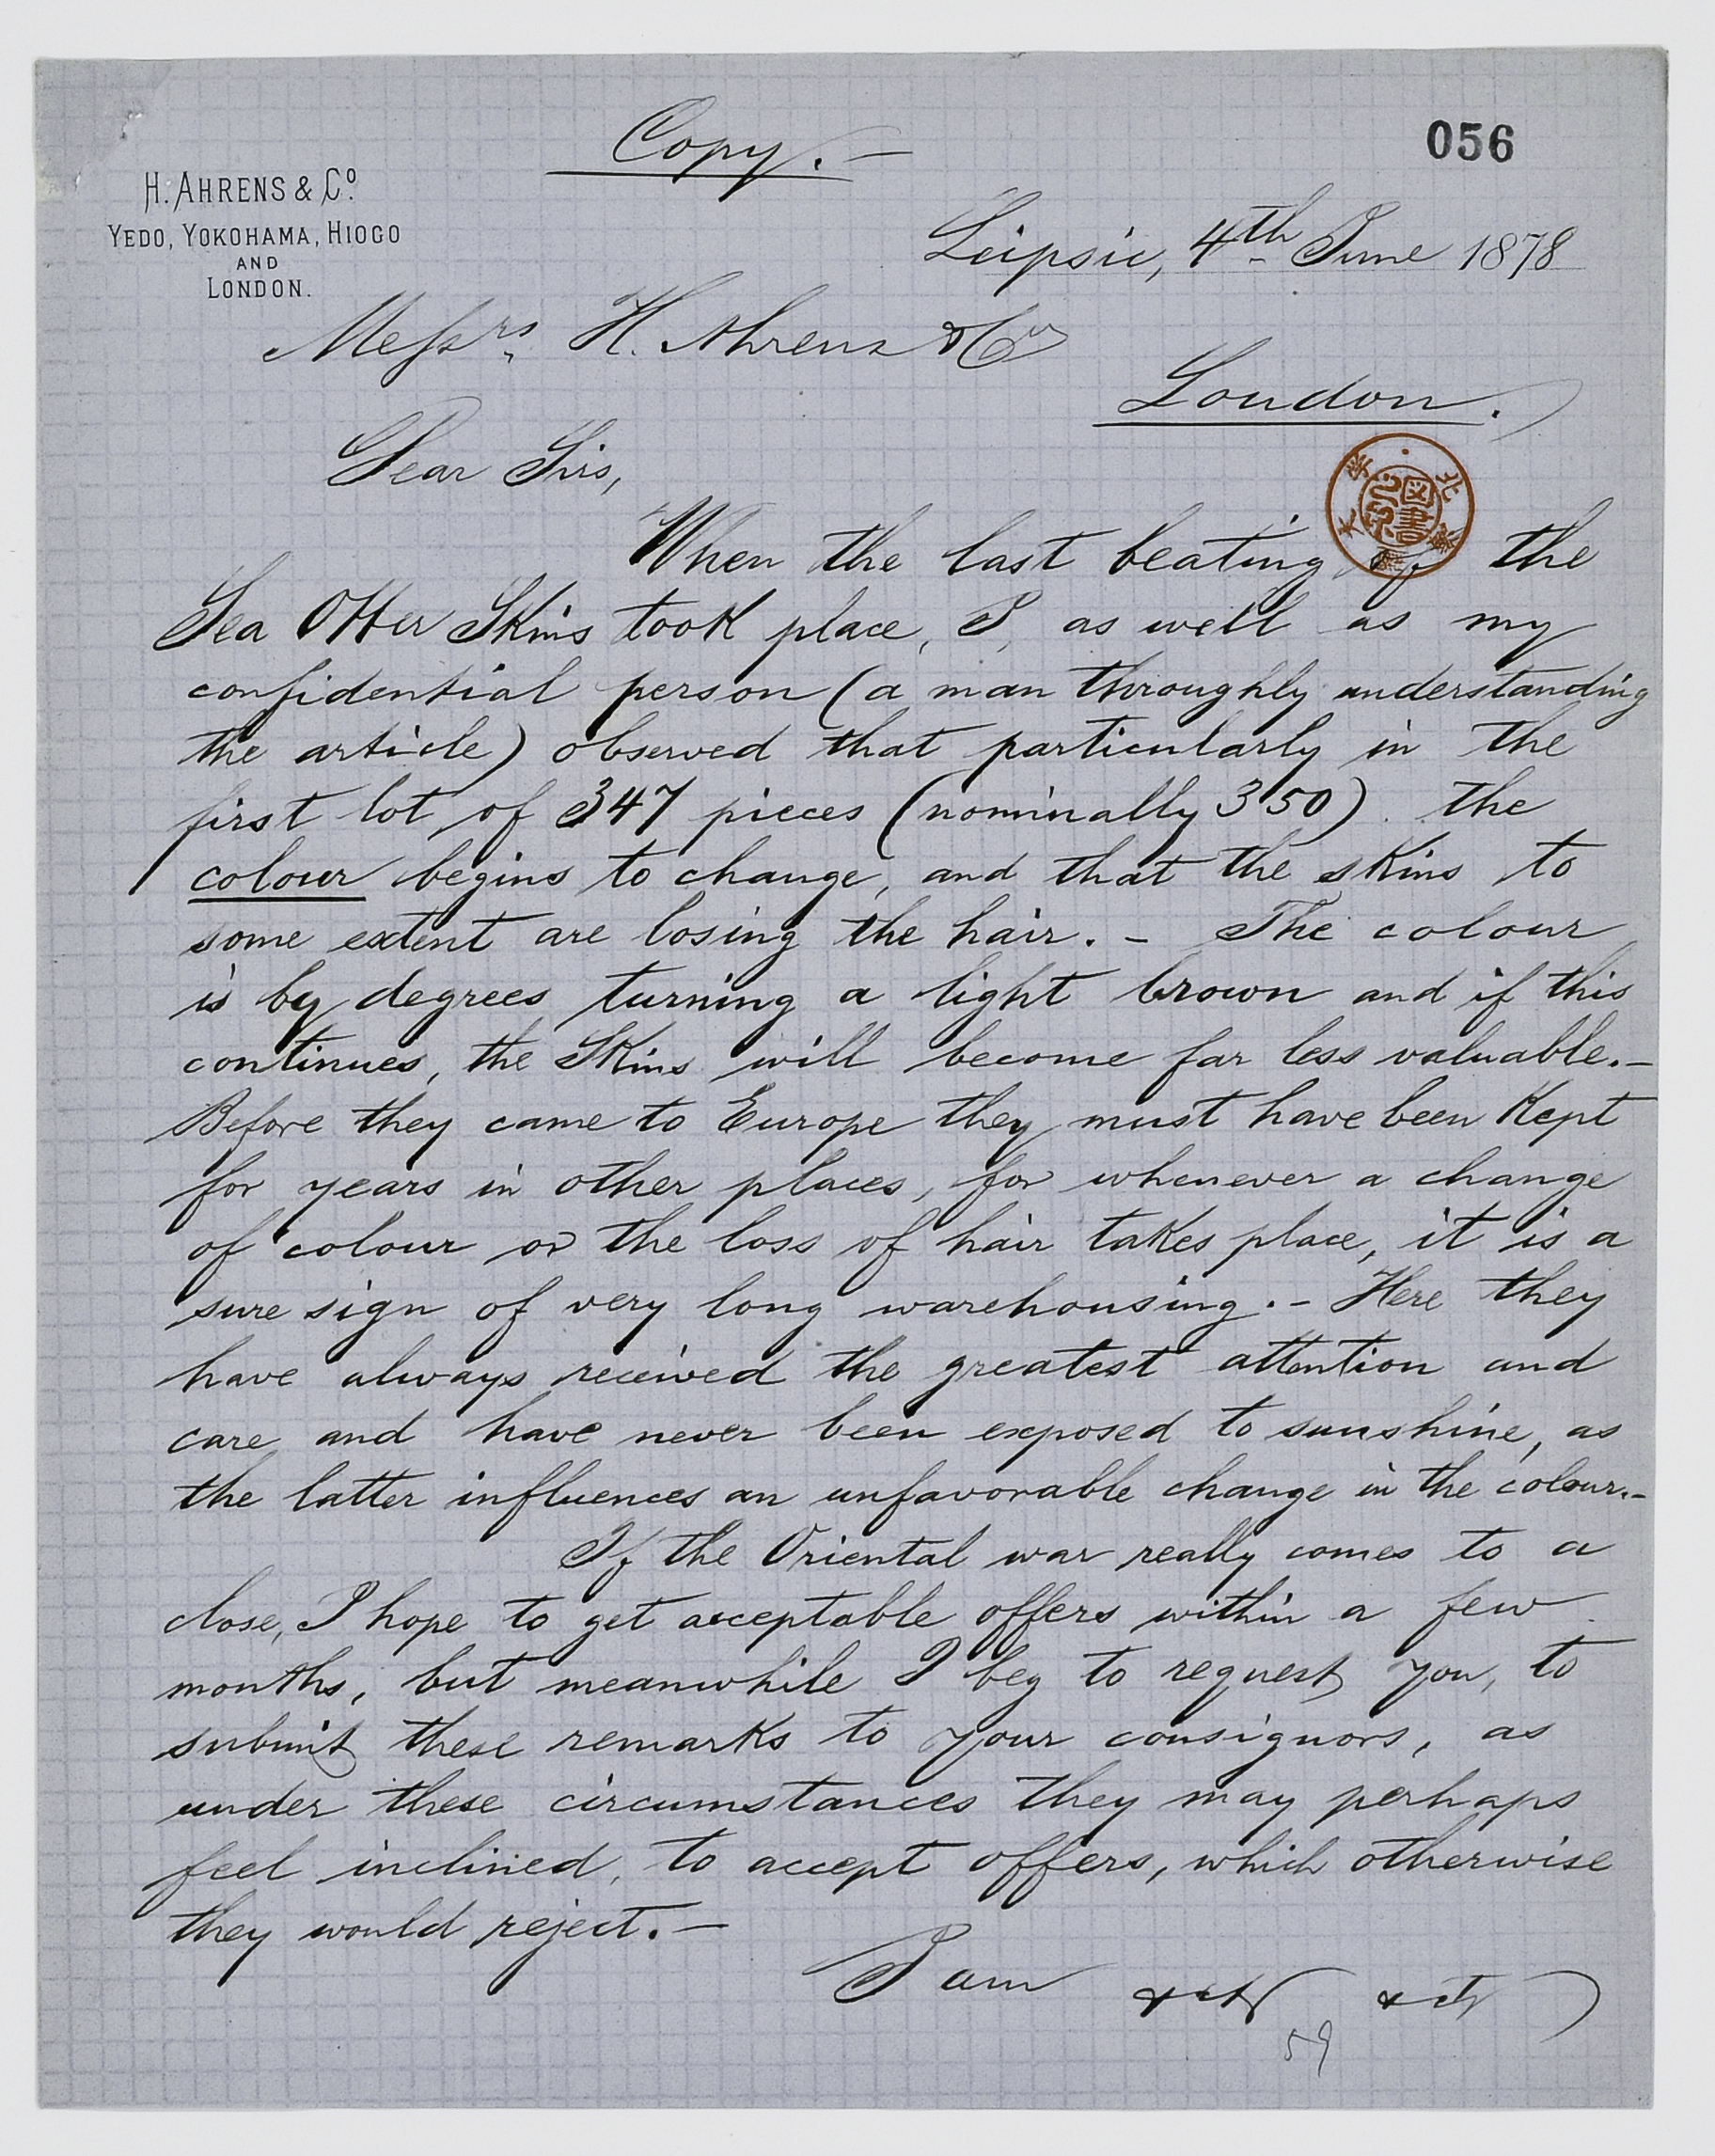 Copy. —
056
H. AHRENS & Cº
YEDO, YOKOHAMA, HIOGO
AND
LONDON.
Leipsic, 4th June 1878
Messrs H. Ahrens & Co
London.
Dear Sirs,
When the last beating of the
Sea Otter Skins took place, I, as well as my
confidential person (a man throughly understanding
the article) observed that particularly in the
first lot of 347 pieces (nominally 350) the
colour begins to change, and that the skins to
some extent are losing the hair. — The colour
is by degrees turning a light brown and if this
continues, the Skins will become far less valuable. —
Before they came to Europe they must have been Kept
for years in other places, for whenever a change
of colour or the loss of hair takes place, it is a
sure sign of very long warehousing. — Here they
have always received the greatest attention and
care and have never been exposed to sunshine, as
the latter influences an unfavorable change in the colour. —
If the Oriental war really comes to a
close, I hope to get acceptable offers within a few
months, but meanwhile I beg to request you, to
submit these remarks to your consignors, as
under these circumstances they may perhaps
feel inclined, to accept offers, which otherwise
they would reject. —
I am &c &c
59